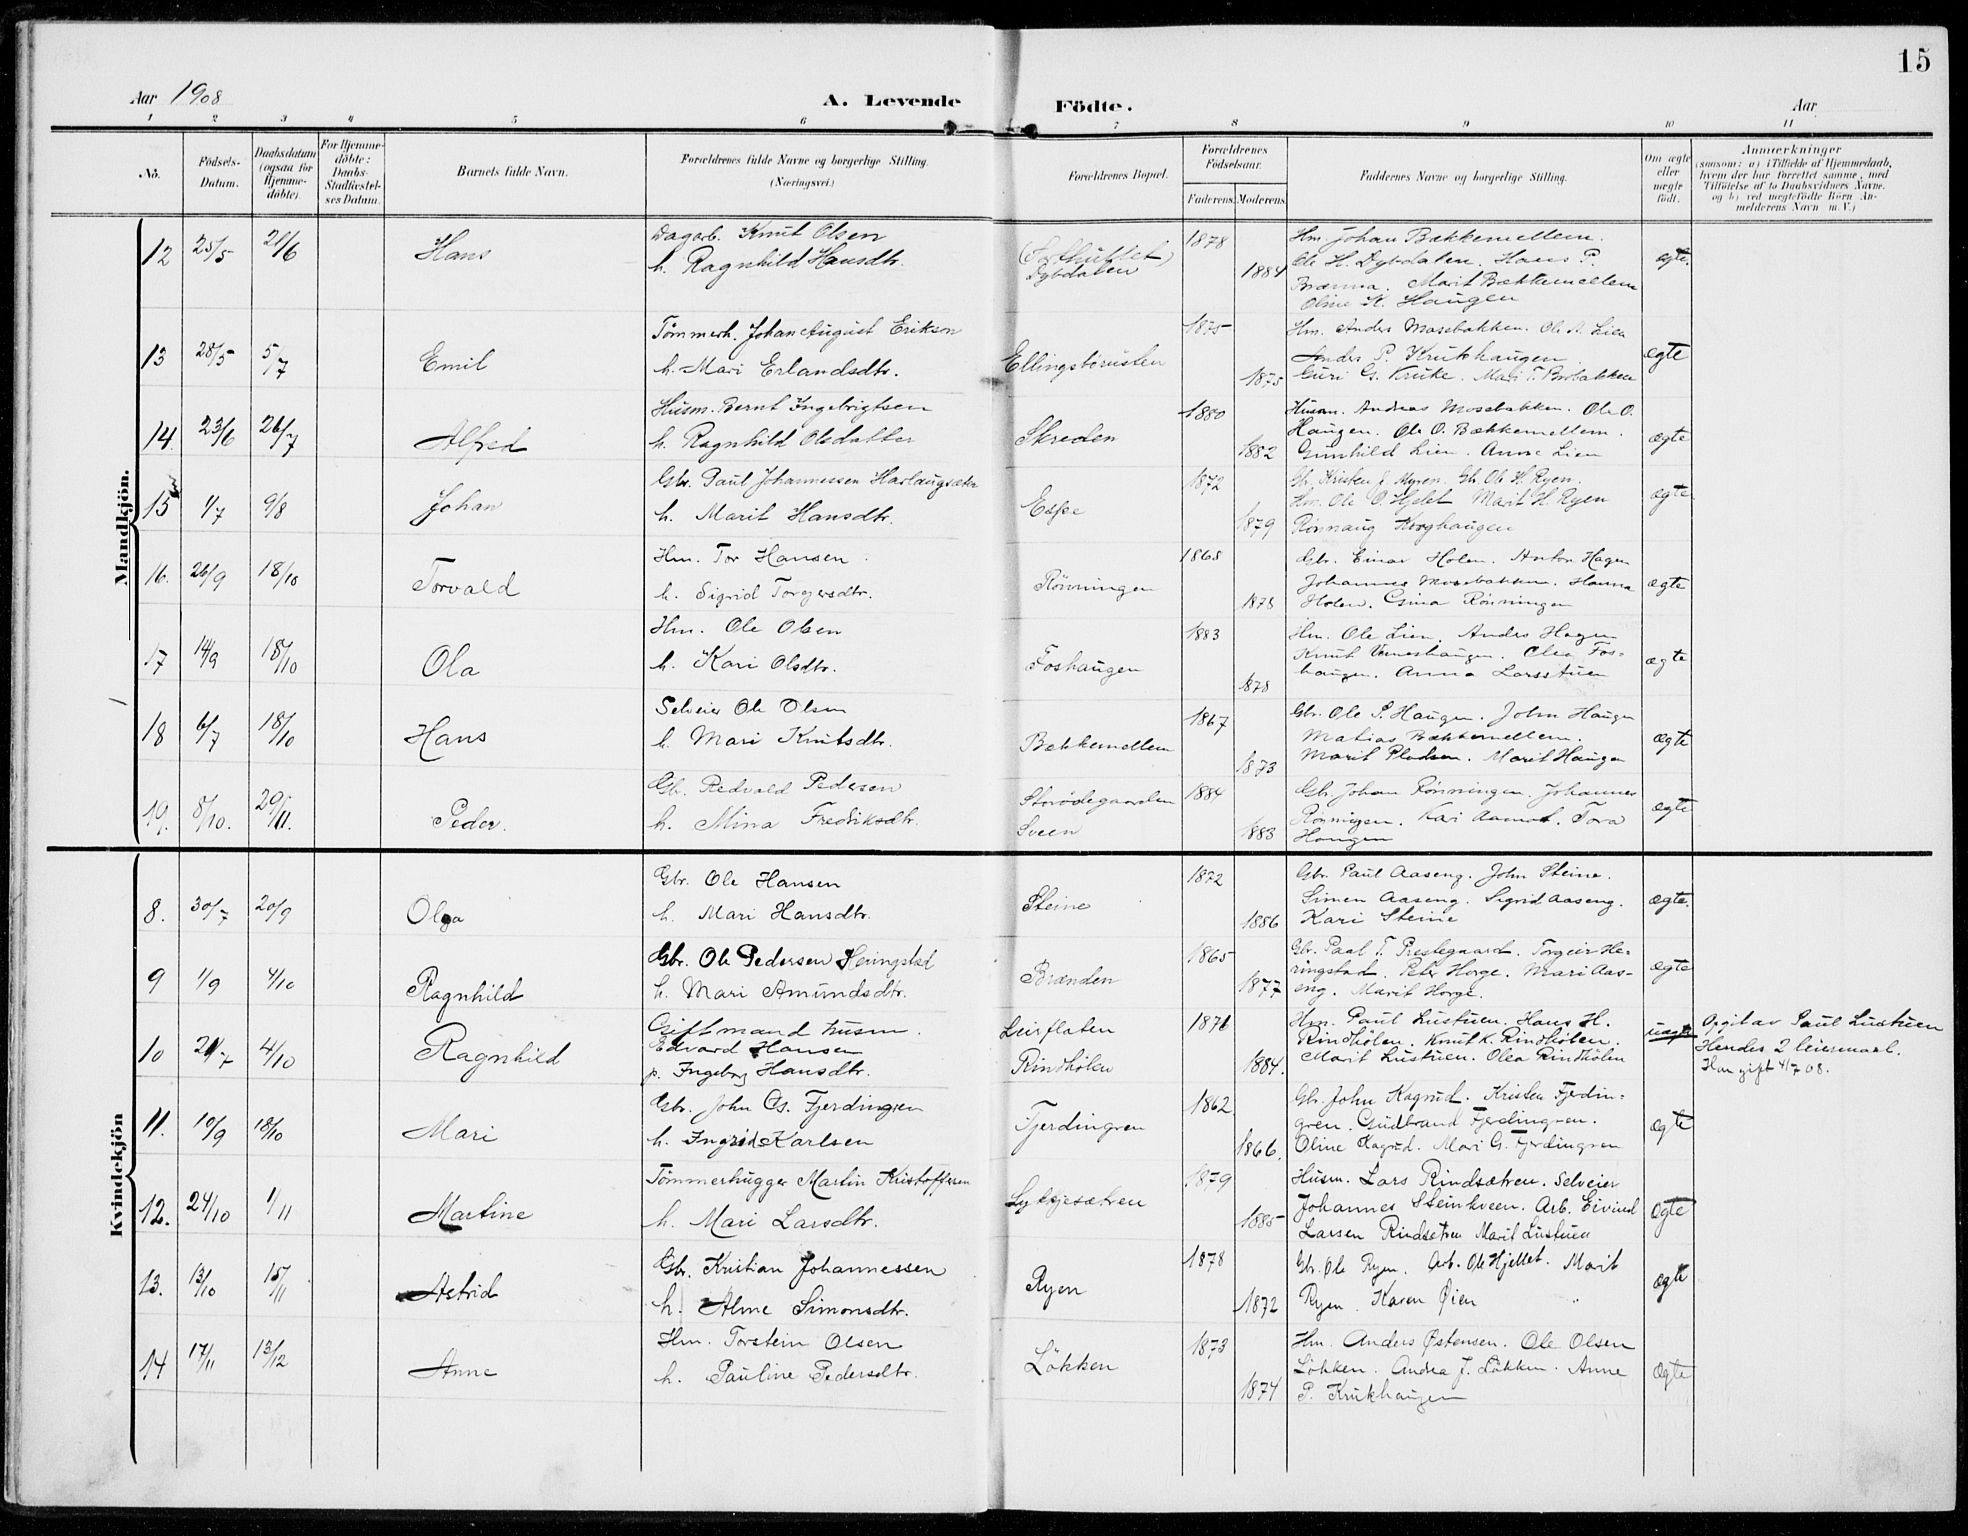 15
Aar 1908
A. Levende Födte.
Aar
1 2 3 4 5 6 7 8 9 10 11
No.
Födsels-Datum.
Daabsdatum (ogsaa for Hjemme-döbte).
For Hjemme-döbte: Daabs-Stadfæstel-ses Datum.
Barnets fulde Navn.
Forældrenes fulde Navne og borgerlige Stilling. (Næringsvei.)
Forældrenes Bopæl.
Forældrenes Födselsaar.
Faderens. Moderens.
Faddernes Navne og borgerlige Stilling.
Om ægte eller uægte födt.
Anmærkninger
(saasom: a) i Tilfælde af Hjemmedaab,
hvem der har forrettet samme, med
Tilföielse af to Daabsvidners Navne,
og b) ved uægtefödte Börn An-
melderens Navn m. V.)
Mandkjön.
12 25/5 21/6 Hans
Dagarb. Knut Olsen
h. Ragnhild Hansdtr.
Dybdalen
1878
1884
Hm. Johan Bækkemellem.
Ole H. Dybdalen. Hans P.
Brænna. Marit Bækkemellem
Oline K. Haugen
ægte.
13 28/5 5/7 Emil
Tømmerh. Johan August Erikson
h. Mari Erlandsdtr.
Ellingsbørusten
1875
1875
Hm. Anders Mosebakken. Ole A. Lien
Anders P. Krukhaugen.
Guri G. Kruke. Mari T. Brobakken
ægte
14. 23/6 26/7 Alfred
Husm. Bernt Ingebrigtsen
h. Ragnhild Olsdatter
Skreden
1880
1882
Husm. Andreas Mosebakken. Ole O.
Haugen. Ole O. Bækkemellem.
Gunhild Lien. Anne Lien
ægte
15 1/7 9/8 Johan
Gbr. Paul Johannessen Harlaugsæter
h. Marit Hansdtr.
1872
1879
Gb. Kristen J. Myren. Gb. Ole H. Ryen.
Hm. Ole O. Hjelet Marit H. Ryen
Rønnaug Korghaugen
ægte
16. 26/9 18/10 Torvald
Hm. Tor Hansen.
h. Sigrid Torgersdtr.
Rönningen
1868
1878
Gbr. Einar Holen. Anton Hagen
Johannes Mosebakken. Hanna
Holen. Gina Rönningen
ægte
17 14/9 18/10 Ola
Hm. Ole Olsen
h. Kari Olsdtr.
Foshaugen
1883
1878
Hm. Ole Lien. Anders Hagen
Knut Verneshaugen. Olea Fos=
haugen. Anna Larsstuen
ægte
18 6/7 18/10 Hans
Selveier Ole Olsen
h. Mari Knutsdtr.
Bækkemellem
1867
1873
Gbr. Ole P. Haugen. John Haugen
Matias Bækkemellem.
Marit Pladsen. Marit Haugen
ægte
19. 8/10. 29/11. Peder.
Gb. Redvald Pedersen
h. Mina Fredriksdtr.
Storødegaarden
Sveen
1884
1883
Gbr. Johan Rönningen. Johannes
Rönnigen. Kari Aamot. Tora
Haugen
ægte
Kvindekjön
8. 30/7 20/9 Olga
Gbr. Ole Hansen
h. Mari Hansdtr.
Steine
1872
1886
Gbr. Paul Aaseng. John Steine.
Simen Aaseng. Sigrid Aaseng.
Kari Steine
ægte.
9 1/9 4/10 Ragnhild
Gbr. Ole Pedersen Heringstad
h. Mari Amundsdtr.
Brænden
1865
1877
Gbr. Paal T. Prestegaard. Torgeir He-
ringstad. Peter Horge. Mari Aas-
eng. Marit Horge.
ægte
10 21/7 4/10 Ragnhild
Gift mand husm.
Edvard Hansen
p. Ingeborg Hansdtr.
Leirflaten
Rindhölen
1871
1884.
Hm. Paul Lustuen. Hans H.
Rindhölen. Knut K. Rindhölen.
Marit Lustuen. Olea Rindhölen
uægte
Opgit av Paul Lustuen
Hendes 2 leiermaal.
Han gift 4/7 08.
11. 10/9 18/10 Mari
Gbr. John Gs. Fjerdingren
h. Ingrid Karlsen
Fjerdingren
1862
1866.
Gbr. John Kagrud. Kristen Fjerdin=
gren. Gudbrand Fjerdingren.
Oline Kagrud. Mari G. Fjerdingren
ægte
12. 24/10 1/11 Martine
Tömmerhugger Martin Kristoffersen
h. Mari Larsdtr.
Lykkjesætren
1879
1885
Husm. Lars Rindsætren. Selveier
Johannes Steinhveen. Arb. Eivind
Larsen Rindsætren Marit Lustuen
Ægte
13. 13/10 15/11 Astrid
Gbr. Kristian Johannessen
h. Alme Simonsdtr.
Ryen
1878
1872
Gbr. Ole Ryen. Arb. Ole Hjellet. Marit
Ryen. Karen Øien
ægte
14 17/11 13/12 Anne
Hm. Torstein Olsen
h. Pauline Pedersdtr.
Lökken
1873
1874
Hm. Anders Østensen. Ole Olsen
Lökken. Andrea J. Lökken. Anne
P. Krukhaugen
Ægte